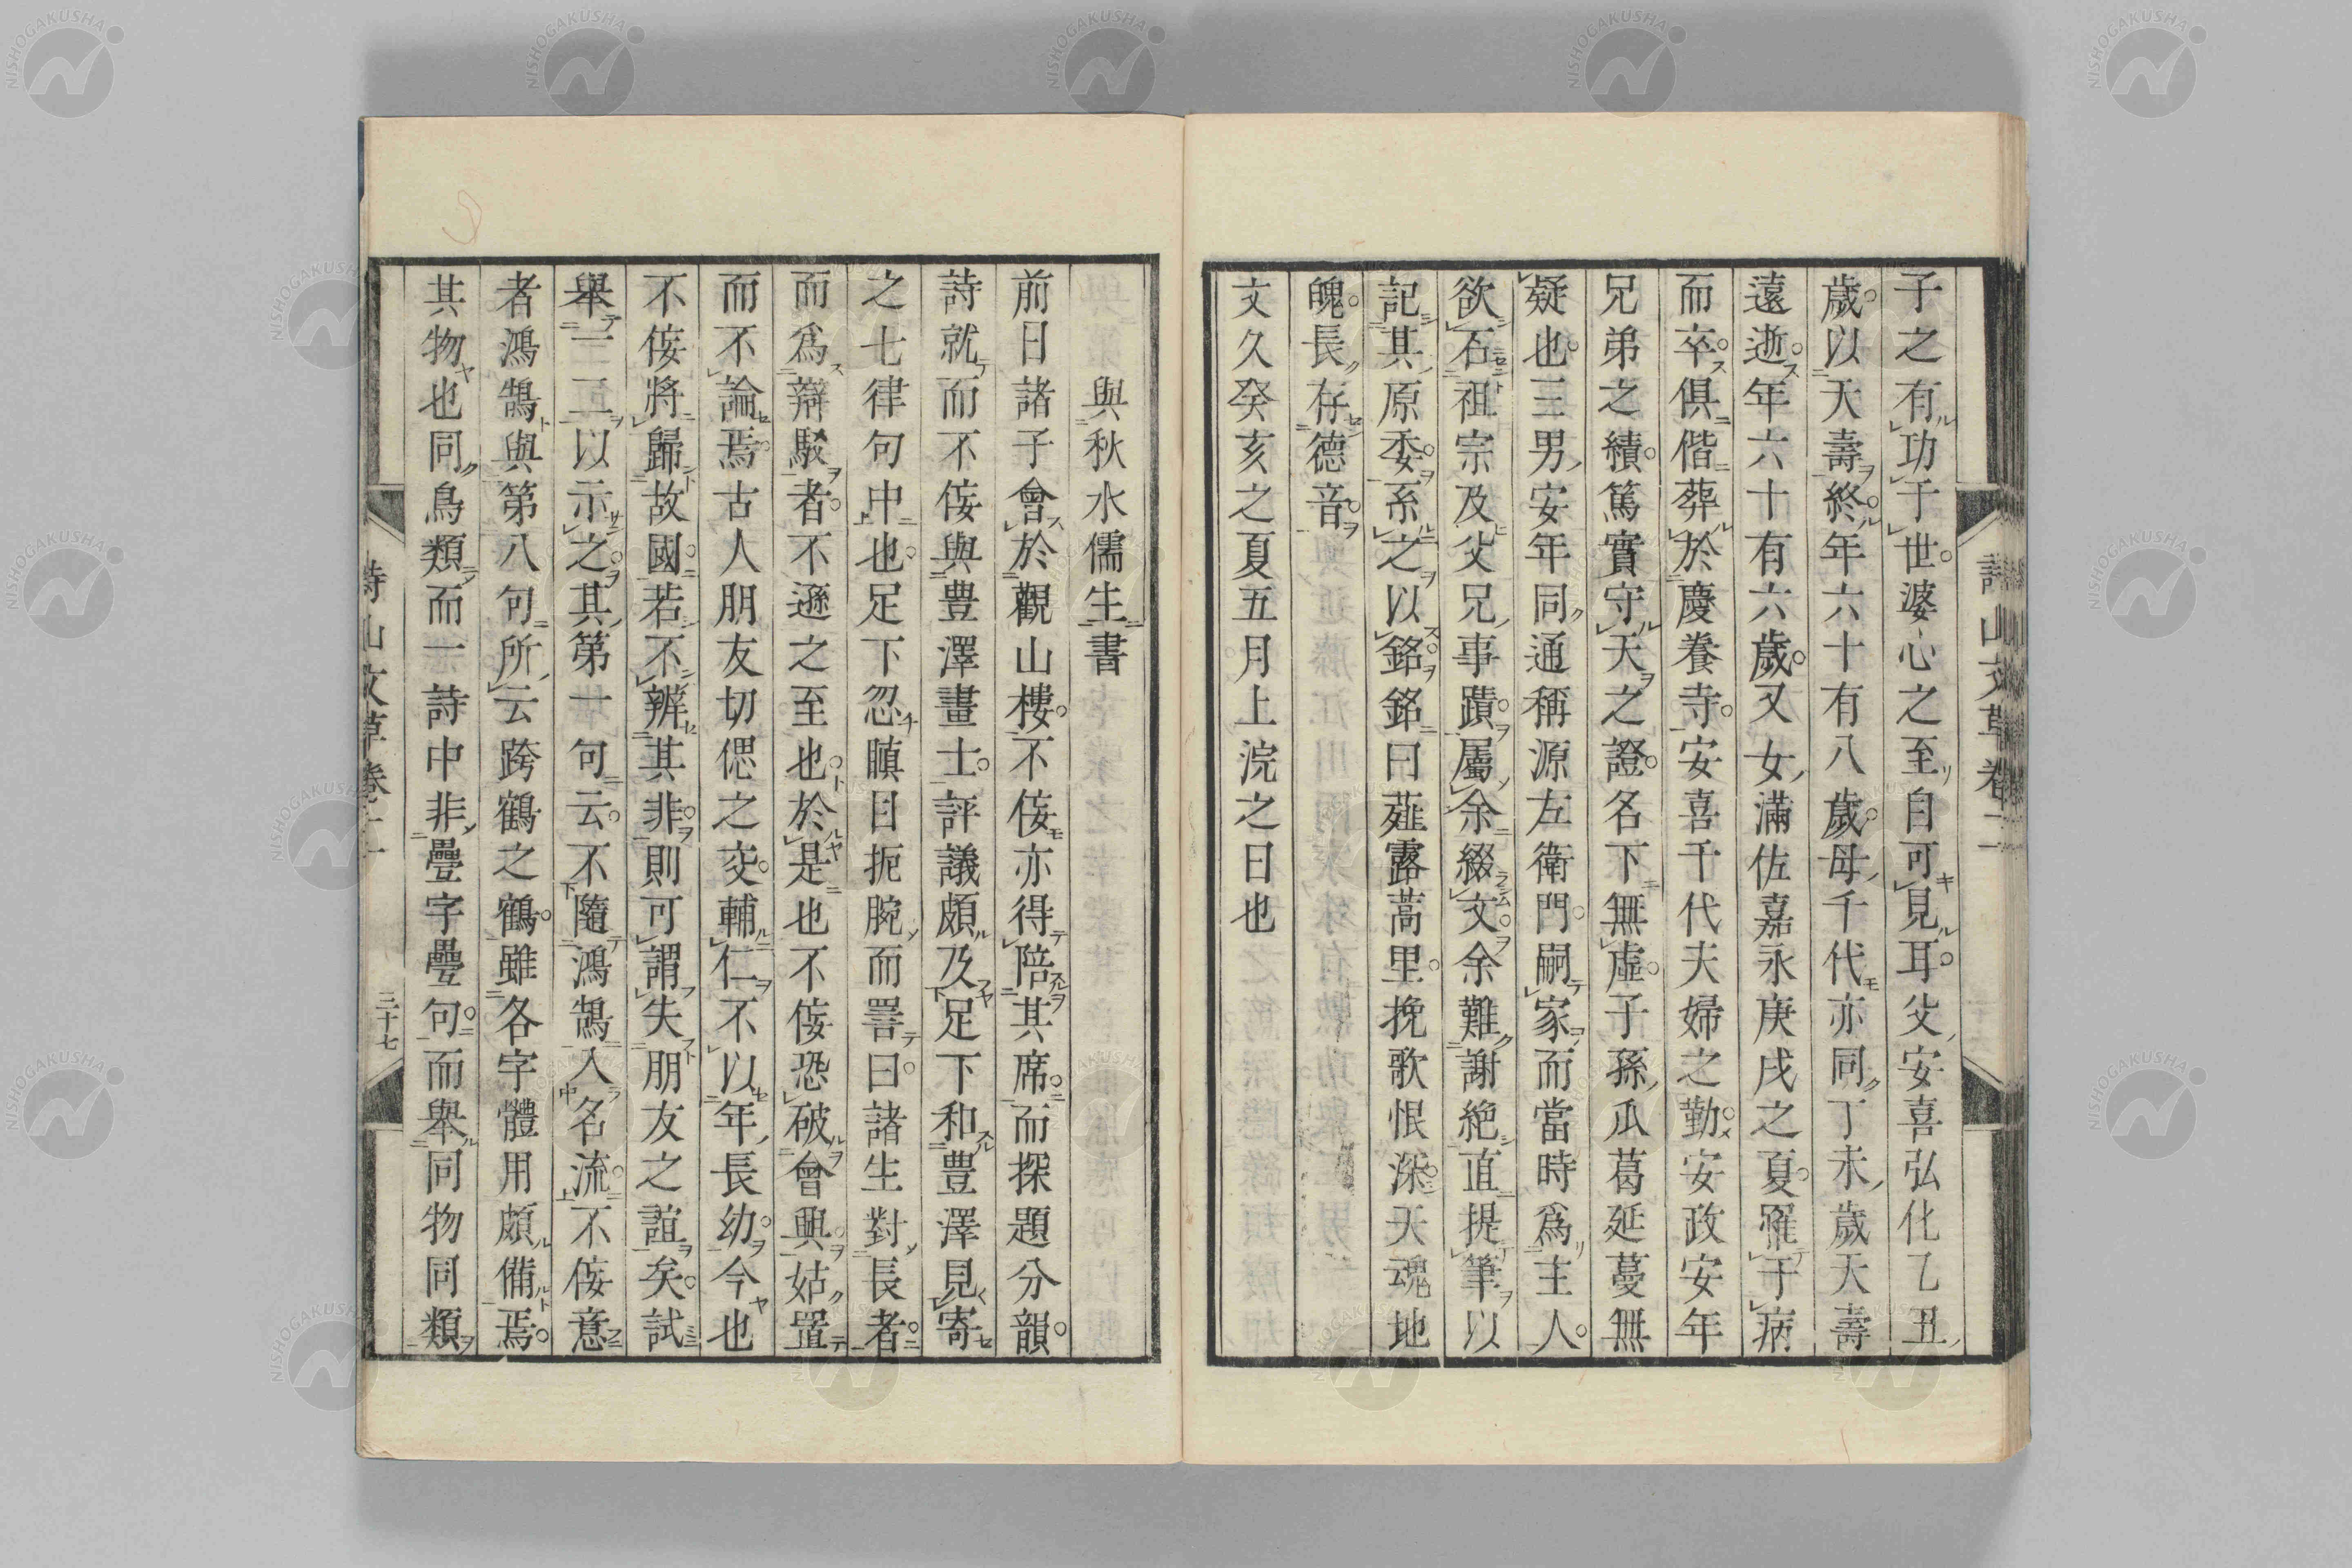 子之有功于世婆心之至自可見耳父安喜弘化乙丑
歲以天壽終年六十有八歲母千代亦同丁未歲天壽
遠逝年六十有六歲又女滿佐嘉永庚戌之夏罹于病
而卒俱偕葬於慶養寺安喜千代夫婦之勤安政安年
兄弟之績篤實守天之證名下無虛子孫瓜葛延蔓無
疑也三男安年同通稱源左衛門嗣家而當時爲主人
欲石祖宗及父兄事蹟屬余綴文余難謝絶直提筆以
記其原委系之以銘銘曰薤露蒿里挽歌恨深天魂地
魄長存德音
文久癸亥之夏五月上浣之日也
詩山文草卷二
與秋水儒生書
前日諸子會於觀山樓不侫亦得陪其席而探題分韻
詩就而不侫與豊澤畫士評議頗及足下和豊澤見寄
之七律句中也足下忍瞋目扼腕而詈曰諸生對長者
而爲辯駁者不遜之至也於是也不侫恐破會興姑置
而不論焉古人朋友切偲之交輔仁不以年長幼今也
不侫將歸故國若不辨其非則可謂失朋友之誼矣試
舉一二以示之其第一句云不隨鴻鵠入名流不侫意
者鴻鵠與第八句所云跨鶴之鶴雖各字體用頗備焉
其物也同鳥類而一詩中非疊字疊句而舉同物同類
詩山文草卷二
三十七
NISHOGAKUSHA